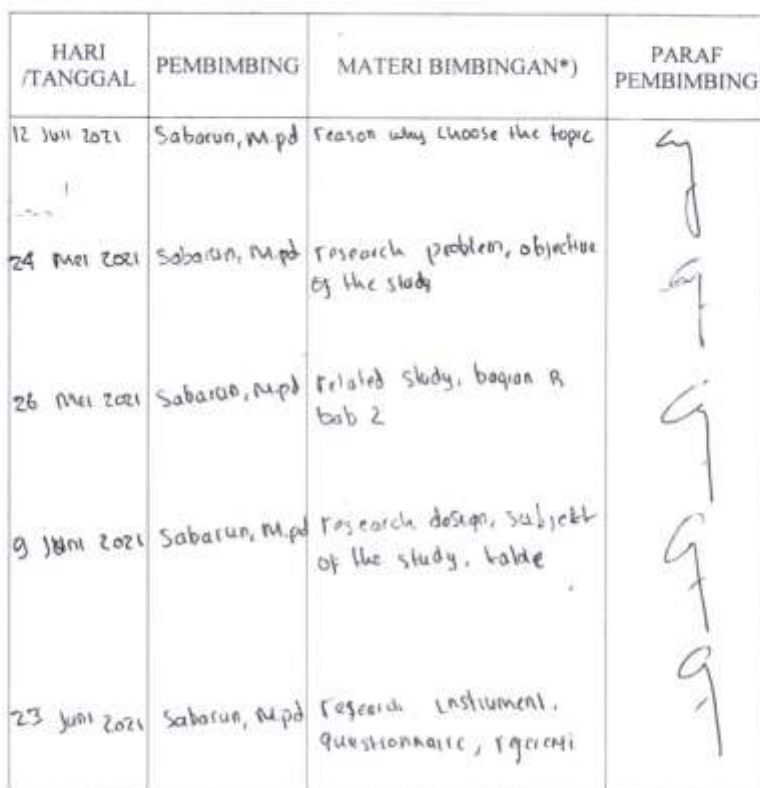 HARI /TANGGAL
PEMBIMBING
MATERI BIMBINGAN*)
PARAF PEMBIMBING
12 Juli 2021 Sabarun, M.pd reason why choose the topic
24 Mei 2021 Sabarun, M.pd research problem, objective
of the study
26 Mei 2021 Sabarun, M.pd related study, bagian B
bab 2
9 Juni 2021 Sabarun, M.pd research design, subjekt
of the study, table
23 Juni 2021 Sabarun, M.pd research instrument,
questionnaire,